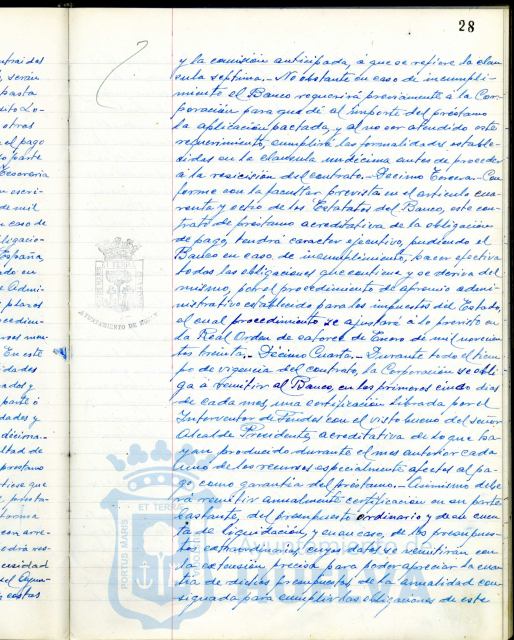 28
y la comisión anticipada, a que se refiere la clau
sula septima.- No obstante en caso de incumpli-
miento el Banco requerirá previamente á la Cor-
poración para que dé al importe del préstamo
la aplicación pactada, y al no ser atendido este
requerimiento, cumplirá las formalidades estable-
cidas en la clausula undécima antes de proceder
á la rescisión del contrato.- Decimo Tercera.- Con
forme con la facultad prevista en el articulo cua
renta y ocho de los Estatutos del Banco, este con
trato de préstamo acreditativo de la obligación
de pago, tendrá caracter ejecutivo, pudiendo el
Banco en caso de incumplimiento, hacer efectiva
todas las obligaciones que contiene y se deriva del
mismo, por el procedimiento de apremio admi-
nistrativo establecido para los impuestos del Estado,
el cual procedimiento se ajustará á lo previsto en
la Real Orden de catorce de Enero de mil novecien
tos treinta.- Décimo Cuarta.- Durante todo el tiem
po de vigencia del contrato, la Corporación se obli-
ga á remitir al Banco, en los primeros cinco dias
de cada mes, una certificación librada por el
Interventor de Fondos con el visto bueno del señor
Alcalde Presidente, acreditativa de lo que ha-
yan producido durante el mes anterior cada
uno de los recursos especialmente afectos al pa-
go como garantía del préstamo.- Asimismo debe
rá remitir anualmente certificación en su parte
bastante, del presupuesto ordinario y de su cuen
ta de liquidación, y en su caso, de los presupues-
tos extraordinarios, cuyos datos se remitirán con
la extensión precisa para poder apreciar la cuan
tia de dichos presupuestos, de la anualidad con
signada para cumplir las obligaciones de este
ET TERRA
PORTUS MARIS